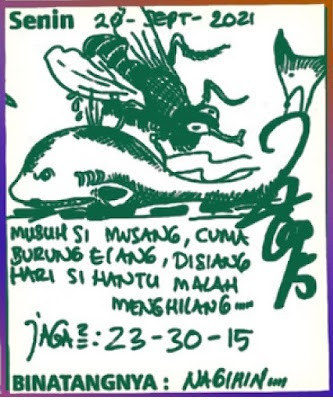 Senin 20-SEPT-2021
MUSUH SI MUSANG, CUMA
BURUNG ELANG, DISIANG
HARI SI HANTU MALAH
MENGHILANG
JAGA²: 23-30-15
BINATANGNYA: